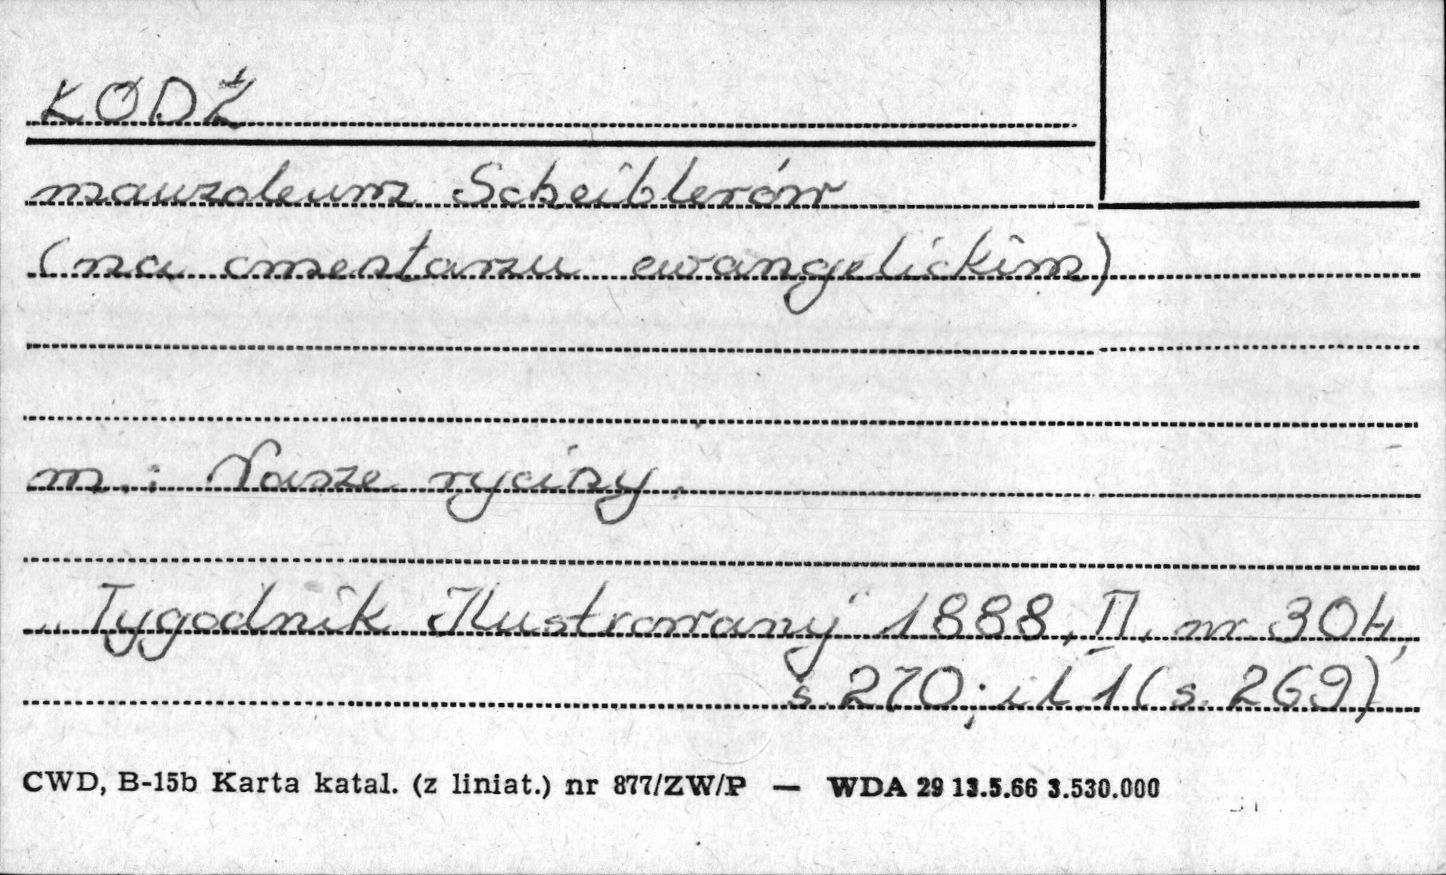 ŁÓDŹ
mauzoleum Scheiblerów
(na cmentarzu ewangelickim)
m.: Nasze ryciny.
„Tygodnik Ilustrowany" 1888, II, nr 304,
s. 270; il. 1 (s. 269)
CWD, B-15b Karta katal. (z liniat.) nr 877/ZW/P — WDA 29 13.5.66 3.530.000